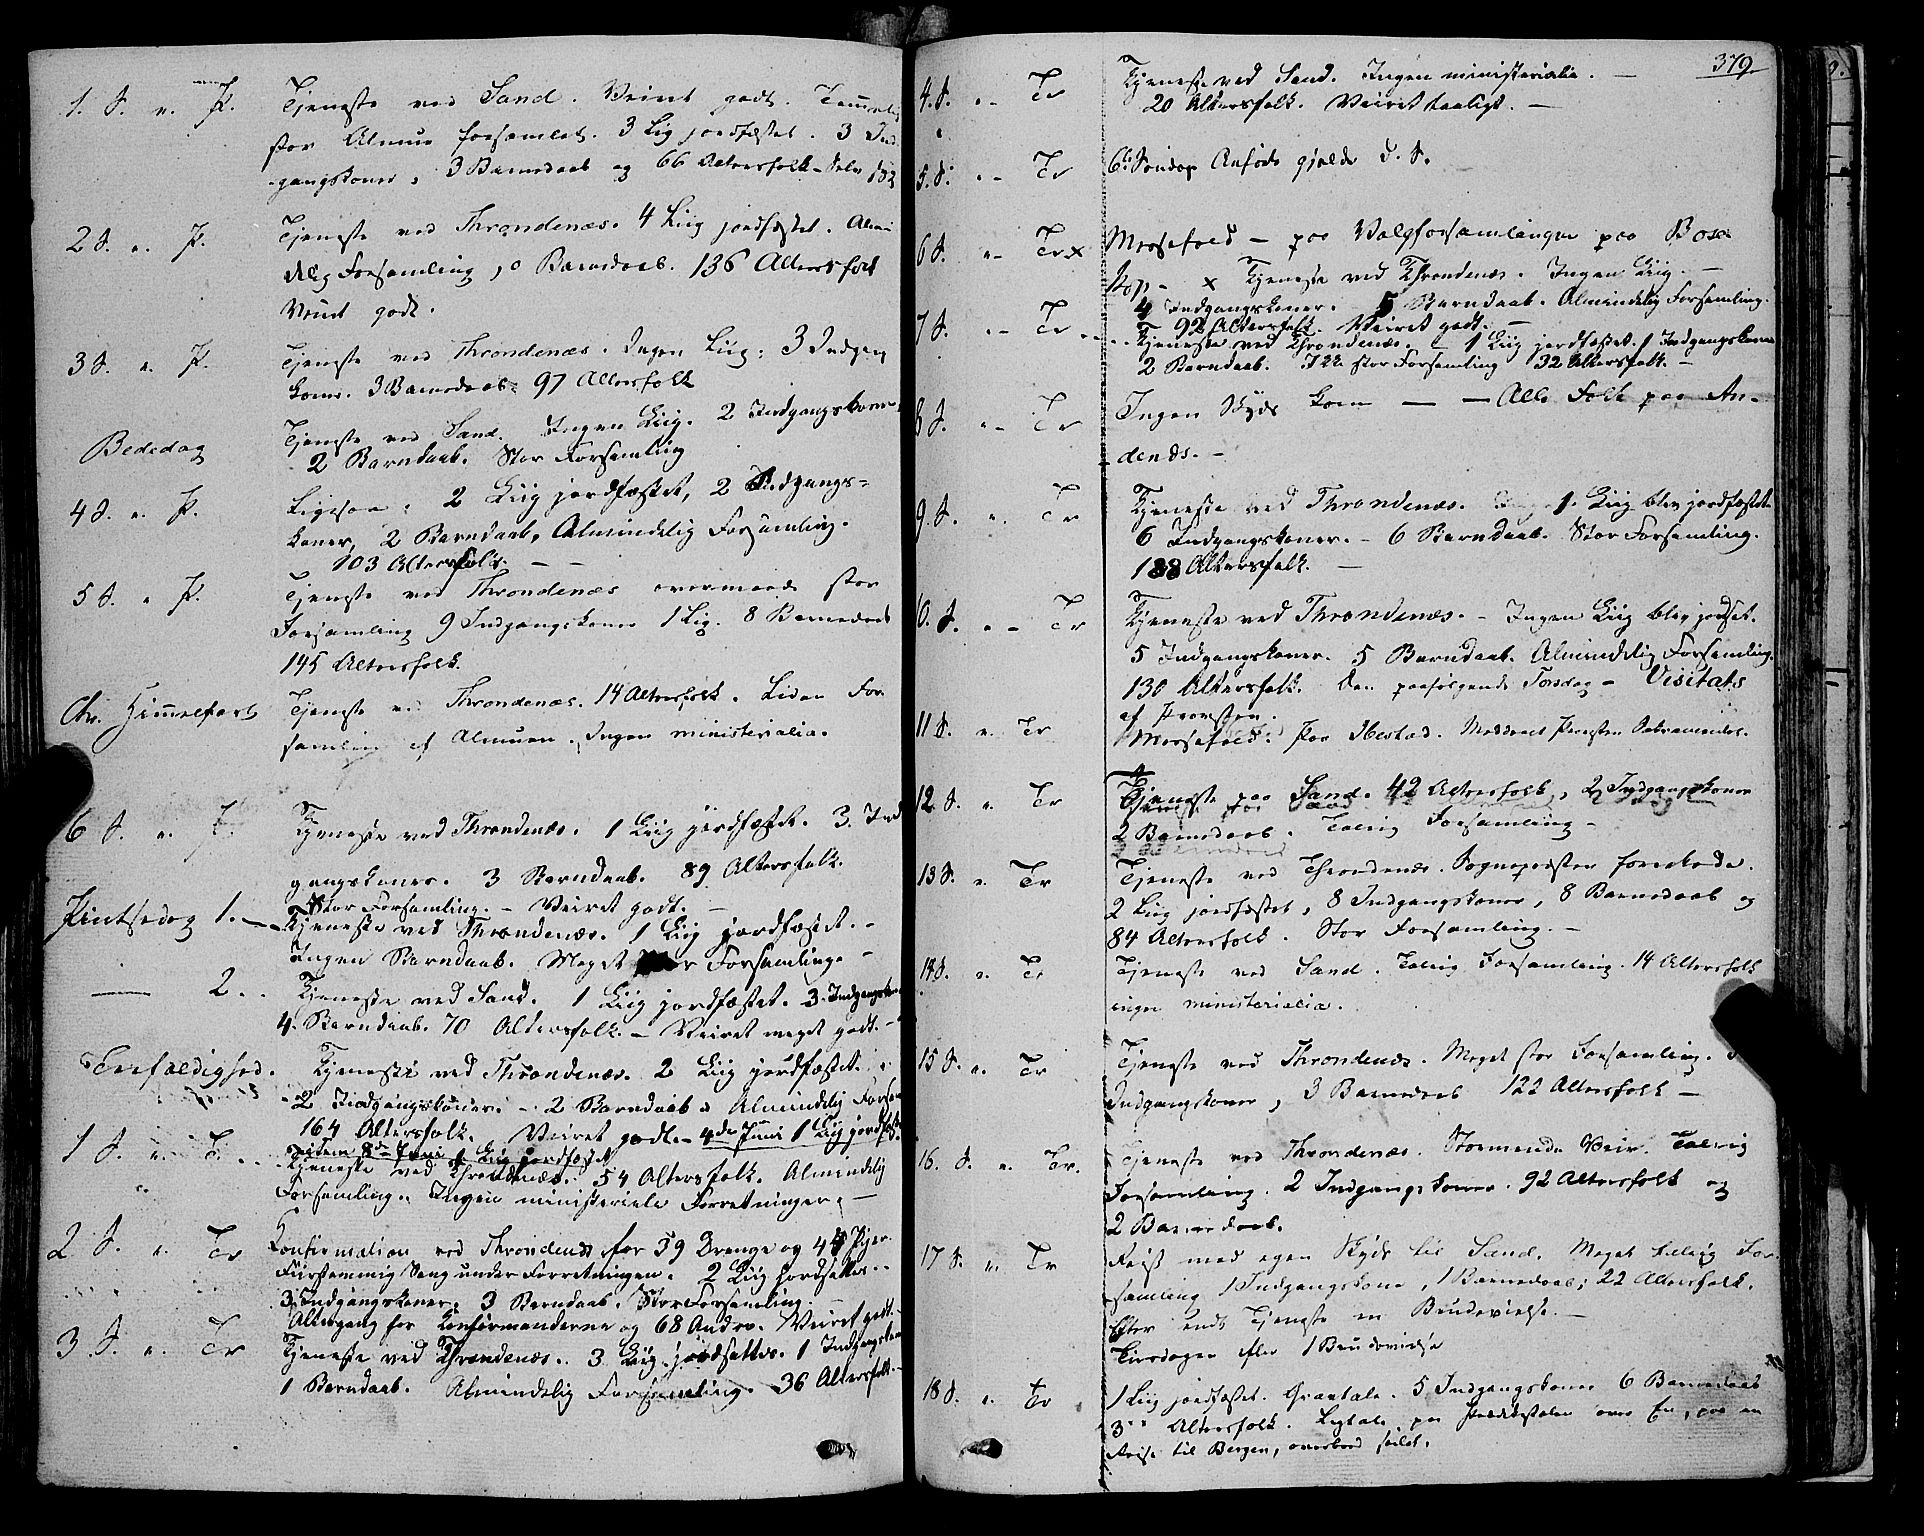 1. S. e. P. Tjeneste ved Sand. Veiret godt. Temmelig
stor Almue forsamlet. 3 Lig jordfæstet. 3 Ind-
gangskoner, 3 Barnedaab og 66 Altersfolk
2 S. e. P. Tjeneste ved Throndenæs. 4 Liig jordfæstet. Almin
delig Forsamling, Barnedaab. 136 Altersfolk
Veiret godt.
3 S. e. P. Tjeneste ved Throndenæs. Ingen Liig. 3 Indgangs
koner. 3 Barnedaab. 97 Altersfolk
Bededag Tjeneste ved Sand. Ingen Liig. 2 Indgangskoner
2 Barndaab. Stor Forsamling
4 S. e. P. Ligesaa. 2 Liig jordfæstet, 2 Indgangs-
koner, 2 Barndaab, Almindelig Forsamling.
103 Altersfolk. — —
5 S. e. P. Tjeneste ved Throndenæs overmaade stor
Forsamling 9 Indgangskoner 1 Lig. 8 Barnedaab
145 Altersfolk.
Chr. Himmelfart Tjeneste ved Throndenæs. 14 Altersfolk. Liden For
samling af Almuen. Ingen ministerialia.
6 S. e. P. Tjeneste ved Throndenæs. 1 Liig jordfæstet. 3. Ind
gangskoner. 3 Barndaab. 89 Altersfolk.
Stor Forsamling. – Veiret godt. –
Pintsedag 1. — Tjeneste ved Throndenæs. 1 Liig jordfæstet. –
Ingen Barndaab. Meget Forsamling –
— 2. Tjeneste ved Sand. 1 Liig jordfæstet. 3. Indgangskoner
4. Barndaab. 70 Altersfolk. – Veiret meget godt. –
Trefoldighed. Tjeneste ved Throndenæs. 2 Liig jordfæstet.
2 Indgangskoner. – 2 Barndaab. Almindelig Forsam
164 Altersfolk. Veiret godt. – 4de Juni 1 Liig jordfæst.
item 8de Juni 1 Liig jordfæstet
1 S. e. T. Tjeneste ved Throndenæs. 54 Altersfolk. Almindelig
Forsamling. Ingen ministerielle Forretninger. —
2 S. e. Tr Confirmation ved Throndenæs for 59 Drenge og 45 Piger.
Fiirstemmig Sang under Forretningen. 2 Liig jordsattes.
3. Indgangskoner. 3 Barndaab. Stor Forsamling. –
Altergang for Confirmanderne og 68 Andre. Veiret godt. –
3 S. e. Tr Tjeneste ved Throndenæs. 3 Liig jordsattes. 1 Indgangskone
1 Barndaab. Almindelig Forsamling. 36 Altersfolk. –
379.
4. S. e. Tr Tjeneste ved Sand. Ingen ministerialia. —
20 Altersfolk. Veiret taaligt. —
5. S. e. Tr 6te Søndag Anførte gjælde d. S.
6 S. e. Tr x Messefald — paa Valgforsamlingen paa Bose
kop – x Tjeneste ved Throndenæs. Ingen Liig. —
4 Indgangskoner. 5 Barndaab. Almindelig Forsamling.
92 Altersfolk. Veiret godt. —
7 S. e. Tr Tjeneste ved Throndenæs. – 1 Liig jordfæstet. 1 Indgangskone
2 Barndaab. Ikke stor Forsamling 32 Altersfolk. –
8 S. e. Tr Ingen Skyds kom — — Alle Folk paa An-
denæs. –
9 S. e. Tr Tjeneste ved Throndenæs. 1 Liig blev jordfæstet
6 Indgangskoner. – 6 Barndaab. Stor Forsamling.
188 Altersfolk. —
10. S. e. Tr Tjeneste ved Throndenæs. – Ingen Liig blev jordsat.
5 Indgangskoner. 5 Barndaab. Almindelig Forsamling.
130 Altersfolk. Den paafølgende Torsdag – Visitats
af Provsten.
11 S. e. Tr Messefald. Paa Ibestad. Meddeelt Provsten Sakramentet.
12 S. e. Tr Tjeneste paa Sand. 42 Altersfolk, 2 Indgangskoner
2 Barnedaab. Talrig Forsamling –
13 S. e. Tr Tjeneste ved Throndenæs. Sognepræsten forrettede.
2 Liig jordfæstet, 8 Indgangskoner, 8 Barnedaab og
84 Altersfolk. Stor Forsamling. –
14 S. e. Tr Tjeneste ved Sand. Talrig Forsamling. 14 Altersfolk
ingen ministerialia.
15 S. e. Tr Tjeneste ved Throndenæs. Meget stor Forsamling.
Indgangskoner, 3 Barnedaab 122 Altersfolk —
16. S. e. Tr. Tjeneste ved Throndenæs. Stormende Veir. Talrig
Forsamling. 2 Indgangskoner. 92 Altersfolk og
2 Barnedaab.
17 S. e. Tr Reist med egen Skyds til Sand. Meget talrig For-
samling 1 Indgangskone, 1 Barnedaab; 22 Altersfolk.
Efter endt Tjeneste en Brudevielse. —
Tirsdagen efter 1 Brudevielse
18 S. e. Tr 1 Liig jordfæstet. Gravtale. 5 Indgangskoner 6 Barnedaab
Altersfolk. Ligtale paa Prædikestolen over En, paa en
Reise til Bergen, overbord faldt.